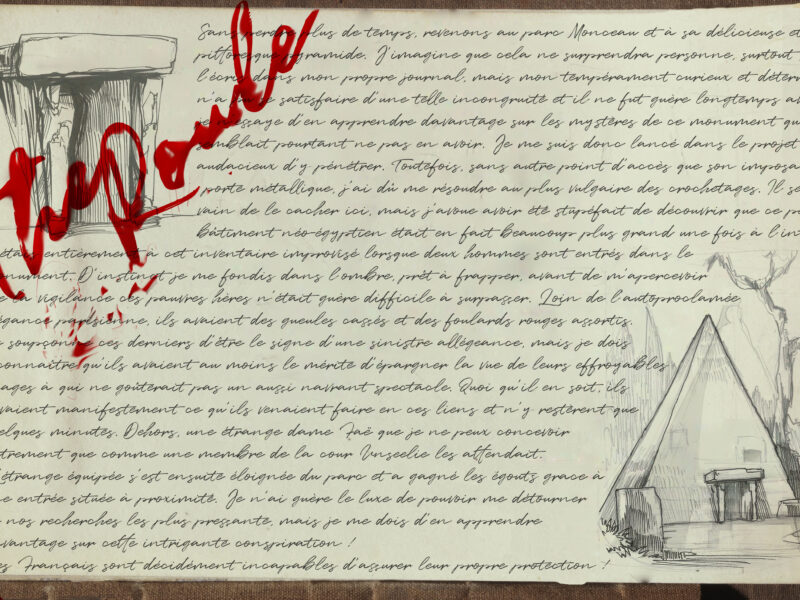 Sans perdre plus de temps, revenons au parc Monceau et à sa délicieuse et
pittoresque pyramide. J'imagine que cela ne surprendra personne, surtout
l'écri dans mon propre journal, mais mon tempérament curieux et déter
n'a satisfaire d'une telle incongruité et il ne fut guère longtemps a
j'essaye d'en apprendre davantage sur les mystères de ce monument qu
semblait pourtant ne pas en avoir. Je me suis donc lancé dans le projet
audacieux d'y pénétrer. Toutefois, sans autre point d'accès que son imposa
porte métallique, j'ai dû me résoudre au plus vulgaire des crochetages. Il se
vain de le cacher ici, mais j'avoue avoir été stupéfait de découvrir que ce p
bâtiment néo-égyptien était en fait beaucoup plus grand une fois à l'in
étais entièrement à cet inventaire improvisé lorsque deux hommes sont entrés dans le
nument. D'instinct je me fondis dans l'ombre, prêt à frapper, avant de m'apercevoir
e la vigilance ces pauvres hères n'était guère difficile à surpasser. Loin de l'autoproclamée
égance parisienne, ils avaient des gueules cassés et des foulards rouges assortis.
soupçonne ces derniers d'être le signe d'une sinistre allégeance, mais je dois
connaître qu'ils avaient au moins le mérite d'épargner la vue de leurs effroyables
ages à qui ne goûterait pas un aussi navrant spectacle. Quoi qu'il en soit, ils
vaient manifestement ce qu'ils venaient faire en ces liens et n'y restèrent que
elques minutes. Dehors, une étrange dame Faë que je ne peux concevoir
trement que comme une membre de la cour Unseelie les attendait.
étrange équipée s'est ensuite éloignée du parc et a gagné les égouts grace à
e entrée située à proximité. Je n'ai guère le luxe de pouvoir me détourner
nos recherches les plus pressante, mais je me dois d'en apprendre
vantage sur cette intrigante conspiration !
es Français sont décidément incapables d'assurer leur propre protection !